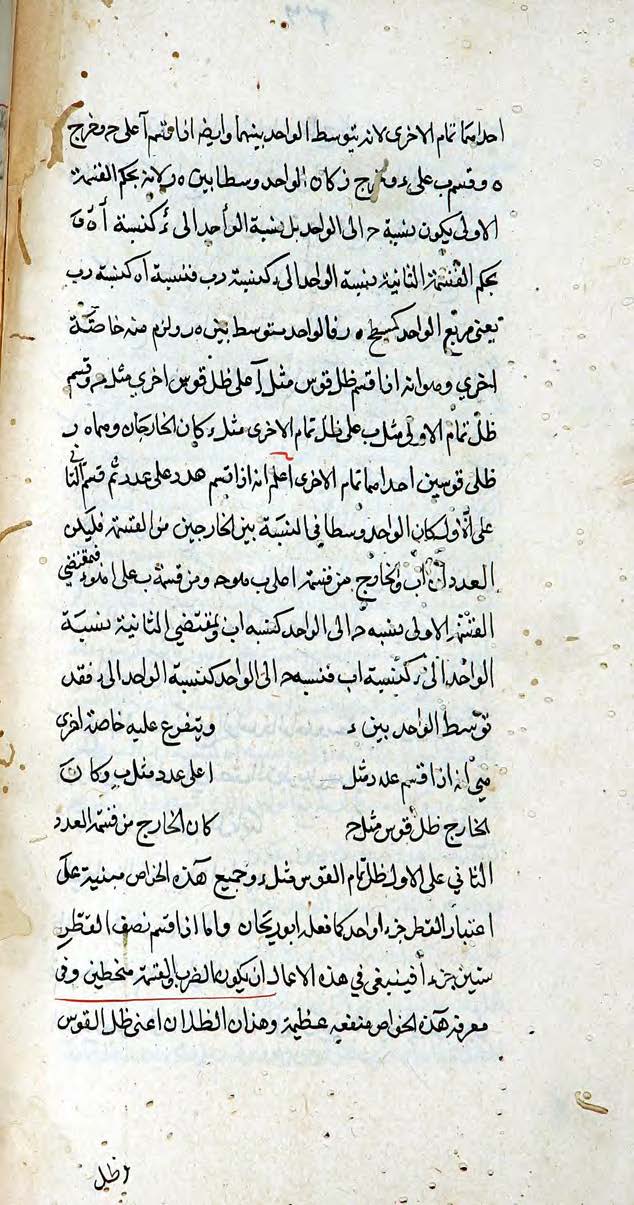 احداهما تمام الاخرى لانه يتوسط الواحد بينهما وايضا اذا قسم آ على ح وخرج
ه وقسم ب على ء وخرج ز كان الواحد وسطا بين ه ر لانه بحكم القسمة
الاولى يكون نسبة ح الى الواحد بل نسبة الواحد الى ء كنسبة أ ه و
بحكم القسمة الثانية نسبة الواحد الى ء كنسبة رب فنسبة آه كنسبة رب
يعنى مربع الواحد كسطح ه ر فالواحد متوسط بين ه ر ولزم منه خاصة
اخرى وهو انه اذا قسم ظل قوس مثل آ على ظل قوس اخرى مثل ح وقسم
ظل تمام الاولى مثل ب على ظل تمام الاخرى مثل ء كان الخارجان وهما ه ر
ظلى قوسين احداهما تمام الاخرى اعلم انه اذا قسم عدد على عدد ثم قسم الثانى
على الاول كان الواحد وسطا فى النسبة بين الخارجين من القسمة فليكن
العددان اب والخارج من قسمة ا على ب هو ح ومن قسمة ب على ا هو ء فبمقتضى
القسمة الاولى نسبه ح الى الواحد كنسبه اب وبمقتضى الثانية نسبة
الواحد الى ء كنسبة اب فنسبه ح الى الواحد كنسبة الواحد الى ء فقد
توسط الواحد بين ء ويتفرع عليه خاصة اخرى
هى انه اذا قسم عدد مثل ا على عدد مثل ب وكان
الخارج ظل قوس مثل ح كان الخارج من قسمة العدد
الثانى على الاول ظل تمام القوس مثل ء وجميع هذه الخواص مبنية على
اعتبار القطر جزءا واحد كما فعله ابو ريحان واما اذا قسم نصف القطر
ستين جزءا فينبغى فى هذه الاعمال ان يكون الضرب والقسمة منحطين وفى
معرفة هذه الخواص منفعه عظيمة وهذان الظلان اعنى ظل القوس
وظل